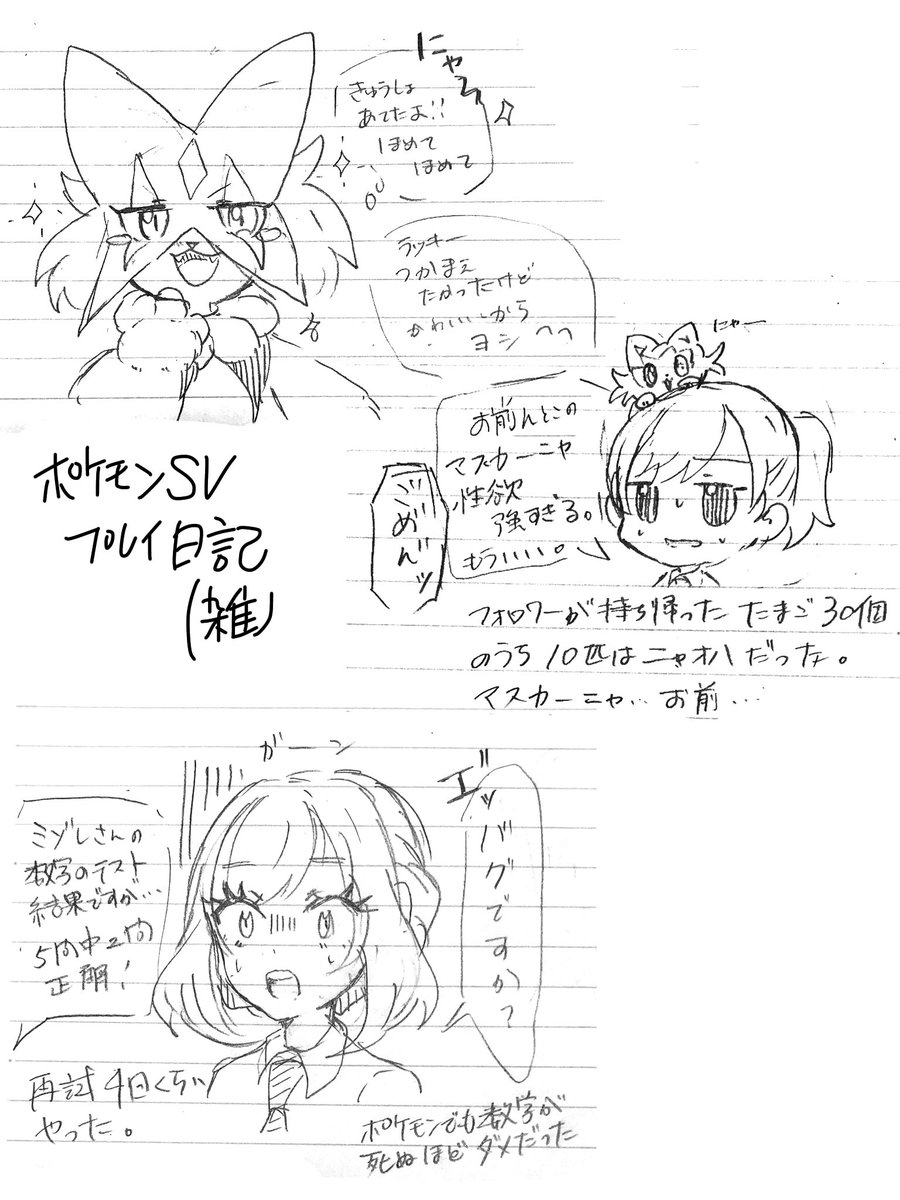 にゃん
きゅうしょ
あてたよ!!
ほめて
ほめて
ラッキー
つかまえ
たかったけど
かわいいから
ヨシ
にゃー
お前んとこの
マスカーニャ
性欲
強すぎる。
もういい。
ごめんッ
ポケモンSV
プレイ日記
(雑)
フォロワーが持ち帰ったたまご30個
のうち10匹はニャオハだった。
マスカーニャ…お前…
ガーン
エッ
バグですか?
ミゾレさんの
数学のテスト
結果ですが…
5問中2問
正解!
再試4回くらい
やった。
ポケモンでも数学が
死ぬほどダメだった